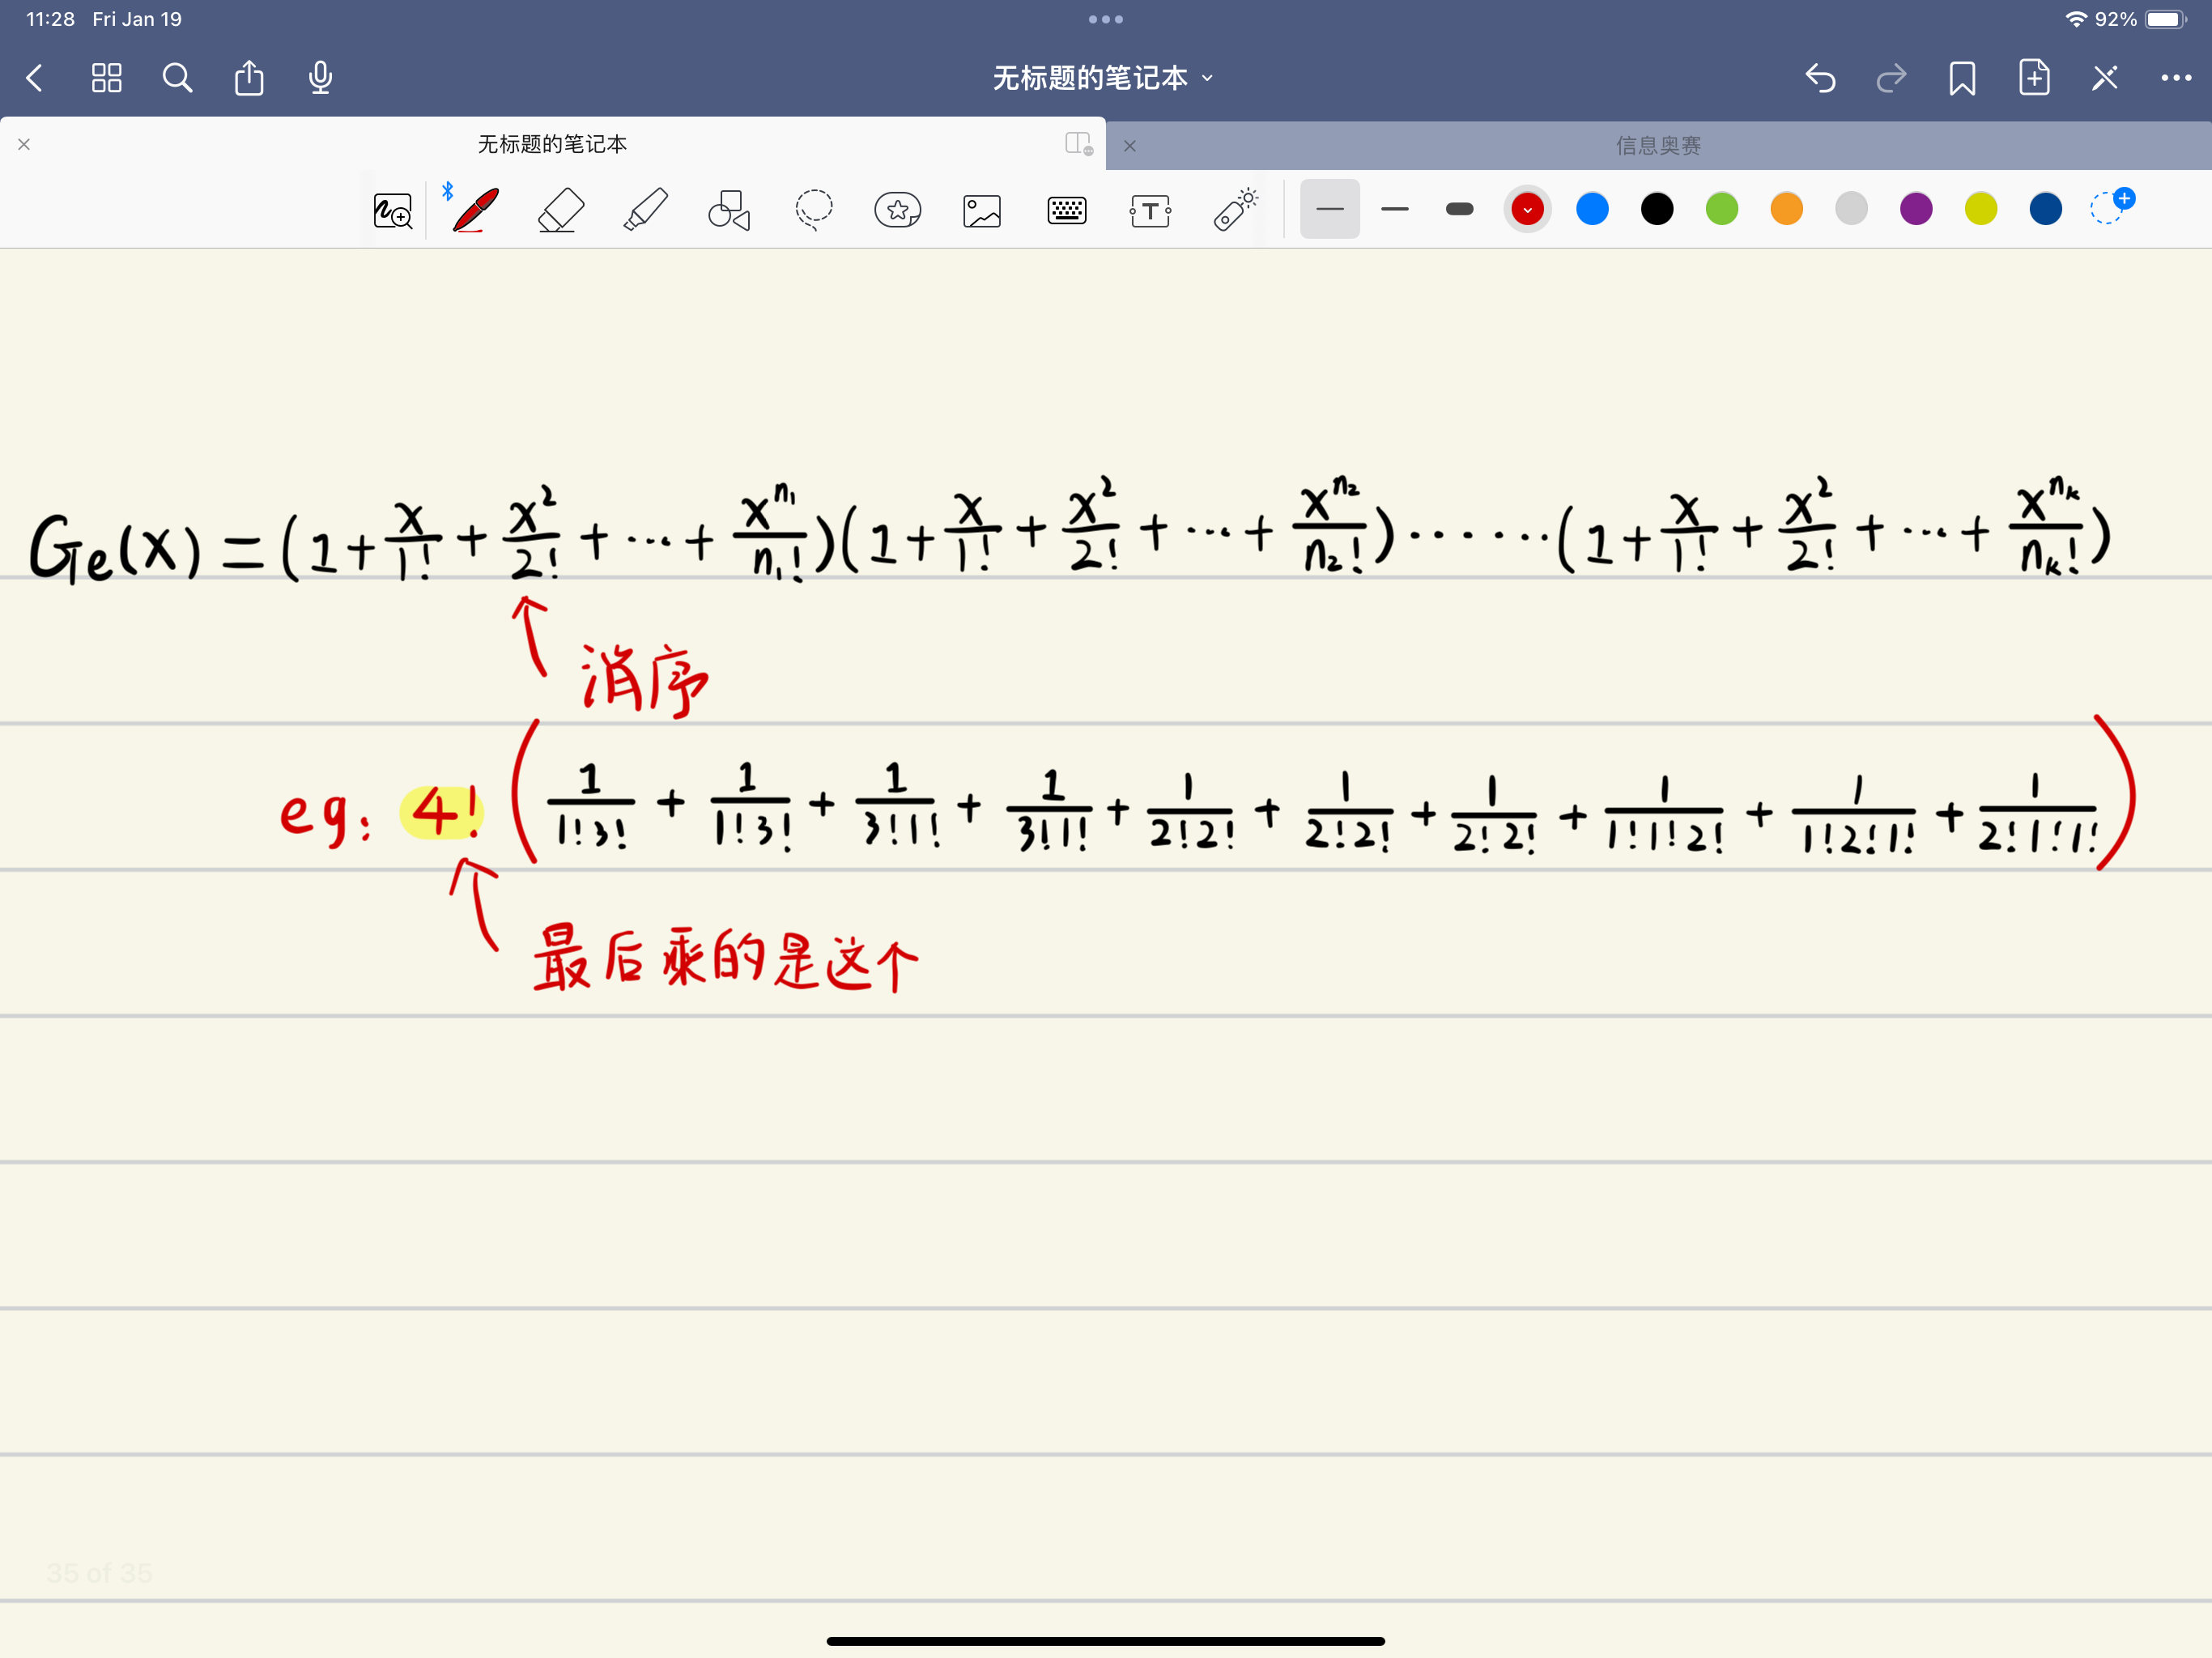 11:28 Fri Jan 19 92%
无标题的笔记本
无标题的笔记本 信息奥赛
Ge(x) = (1 + x/1! + x²/2! + ··· + x^n₁/n₁!)(1 + x/1! + x²/2! + ··· + x^n₂/n₂!)······(1 + x/1! + x²/2! + ··· + x^nₖ/nₖ!)
消序
eg: 4! (1/1!3! + 1/1!3! + 1/3!1! + 1/3!1! + 1/2!2! + 1/2!2! + 1/2!2! + 1/1!1!2! + 1/1!2!1! + 1/2!1!1!)
最后乘的是这个
35 of 35